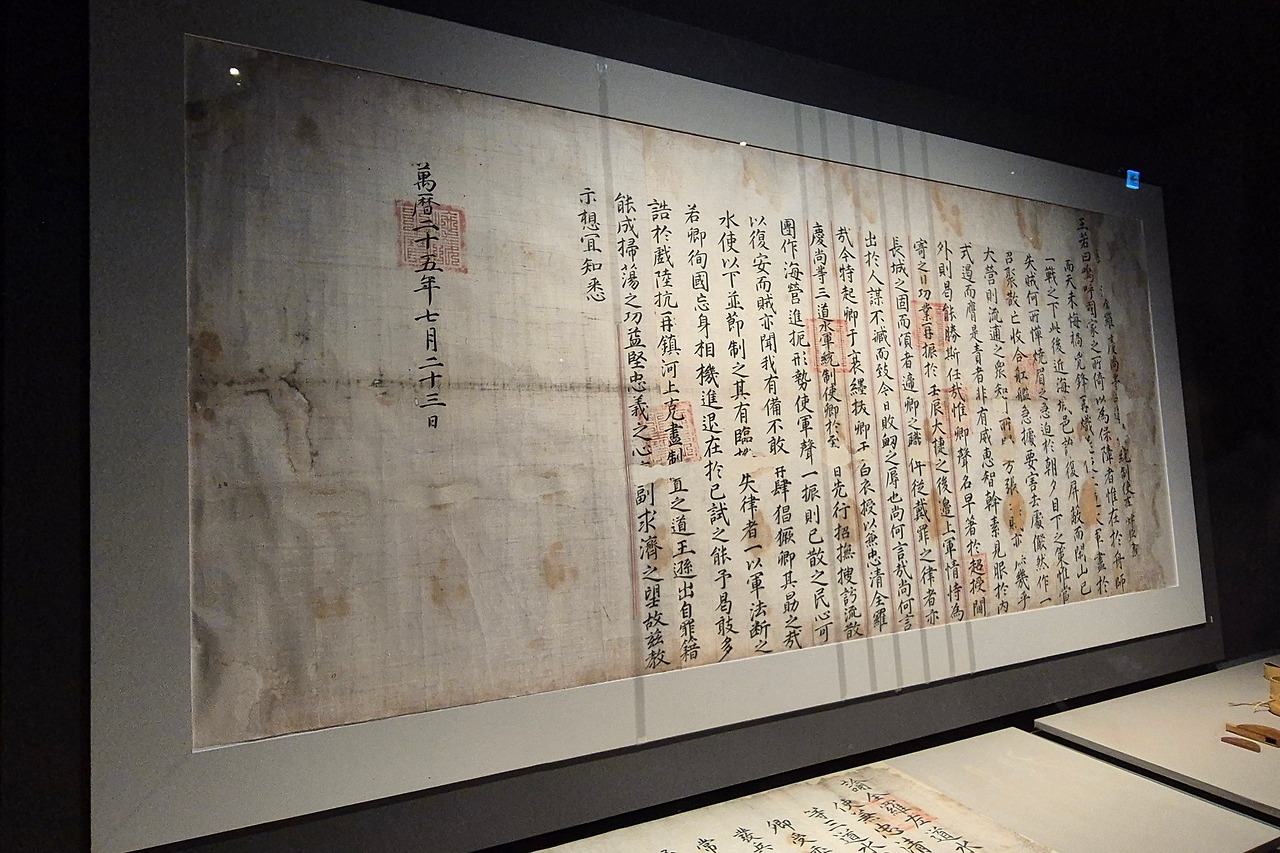 羅慶尚等三道 統制使李 書
王若曰嗚呼國家之所倚以為保障者惟在於舟師
而天未悔禍兇鋒再熾 三道大軍盡於
一戰之下此後近海城邑誰復屏蔽而閑山已
失賊何所憚燒眉之急迫於朝夕目下之策惟當
召聚散亡收合船艦急據要害去處儼然作一
大營則流逋之衆知有所 方張之賊亦 以幾乎
式遏而膺是責者非有威惠智幹素見服於內
外則曷能勝斯任哉惟卿聲名早著於超授閫
寄之日功業再振於壬辰大捷之後邊上軍情恃為
長城之固而頃者遞卿之職俾從戴罪之律者亦
出於人謀不臧而致今日敗衂之辱也尚何言哉尚何言
哉今特起卿于衰絰拔卿于白衣授以兼忠清全羅
慶尚等三道水軍統制使卿於至日先行招撫搜訪流散
團作海營進扼形勢使軍聲一振則已散之民心可
以復安而賊亦聞我有備不敢再肆猖獗卿其勗之哉
水使以下並節制之其有臨機失律者一以軍法斷之
若卿徇國忘身相機進退在於已試之能予曷敢多
誥於戲陸抗再鎮河上克盡制置之道王遜出自罪籍
能成掃蕩之功益堅忠義之心 副求濟之望故茲教
示想宜知悉
萬曆二十五年七月二十三日
諭全羅左道水
使兼忠清
等三道水
卿受
發兵
常